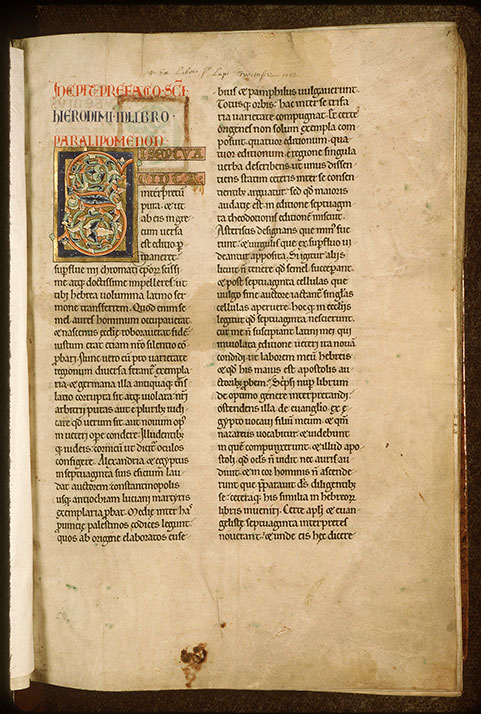 INCIPIT PREFACIO SCI
HIERONIMI IN LIBRO
PARALIPOMENON
SI SEPTUA
GINTA
interpretū
pura & ut
ab eis in gre
cum uersa
est editio p
maneret
supflue mi chromati epōꝝ scissi
me atq; doctissime impelleres ut
tibi hebrea uolumina latino ser
mone transferrem. Quod enim se
mel aures hominum occupauerat
& nascentis eccl̄ie roborauerat fidē
iustum erat etiam nr̄o silentio cō
p̄bari. Nunc uero cū p uarietate
regionum diuersa ferant̄ exempla
ria & germana illa antiquaq; t̄ns
latio corrupta sit atq; uiolata nr̄i
arbitrii putas aut e pluribʒ iudi
care qd̄ uerum sit aut nouum op̄
in ueteri ope condere. Illudentibʒ
q; iudeis cornicū ut dicit̄ oculos
configere. Alexandria & egyptus
in septuaginta suis esicium lau
dat auctorem constantinopolis
usq; antiochiam luciani martyris
exemplaria p̄bat. Mediȩ inter has
puinciȩ palestinos codices legunt
quos ab origene elaboratos euse
bius & pamphilus uulgauerunt.
Totusq; orbis hac inter se trifa
ria uarietate compugnat. Et certe
origenes non solum exempla com
posuit quatuor editionum qua
tuor editionum e regione singula
uerba describens ut unus dissen
tiens statim ceteris inter se consen
tientibʒ arguatur. sed qd̄ maioris
audatiȩ est in editione septuagin
ta theodotionis editionē miscuit.
Asteriscis designans que min̄ fue
runt & uirgulis que ex supfluo ui
deantur apposita. Si igitur aliis
licuit n̄ tenere qd̄ semel susceperant
& post septuaginta cellulas que
uulgo sine auctore iactant̄ singl̄as
cellulas aperuere hocq; in eccl̄iis
legitur qd̄ septuaginta nescierunt
cur me n̄ suscipiant latini mei qui
inuiolata editione ueteri ita nouā
condidi ut laborem meū hebreis
& qd̄ his maius est apostolis au
ctoribʒ p̄bem. Scripsi nup librum
de optimo genere interpretandi
ostendens illa de euanglio ex e
gypto uocaui filiū meum & qm̄
nazareus uocabitur & uidebunt
in quē compunxerunt & illud apo
stoli qd̄ ocl̄s n̄ uidit nec auris au
diuit & in cor hominis n̄ ascende
runt que pparauit ds̄ diligentibʒ
se ceteraq; his similia in hebreoꝝ
libris inueniri. Certe apl̄i & euan
gelistȩ septuaginta interpretes
nouerant & unde eis hec dicere